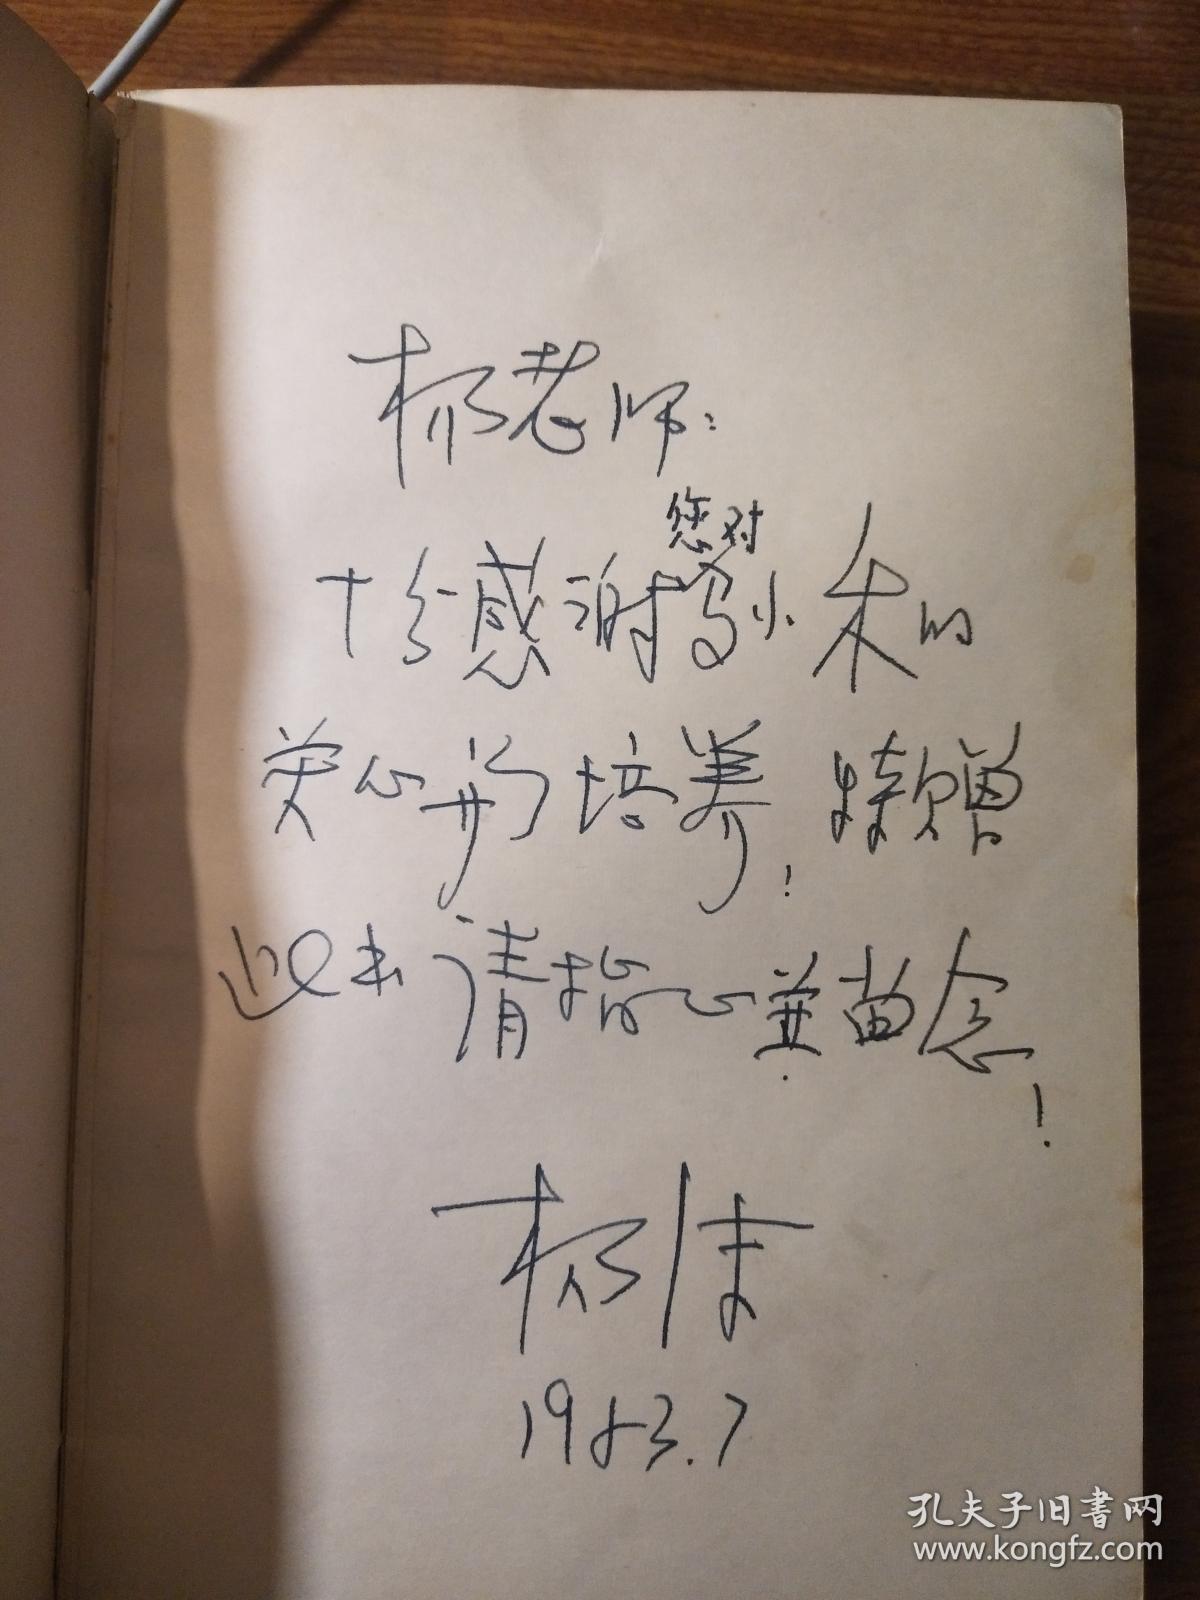 杨老师：
您对
十分感谢小的
关心培养！特赠
请指正並留念！
杨
1983.7
孔夫子旧书网
www.kongfz.com